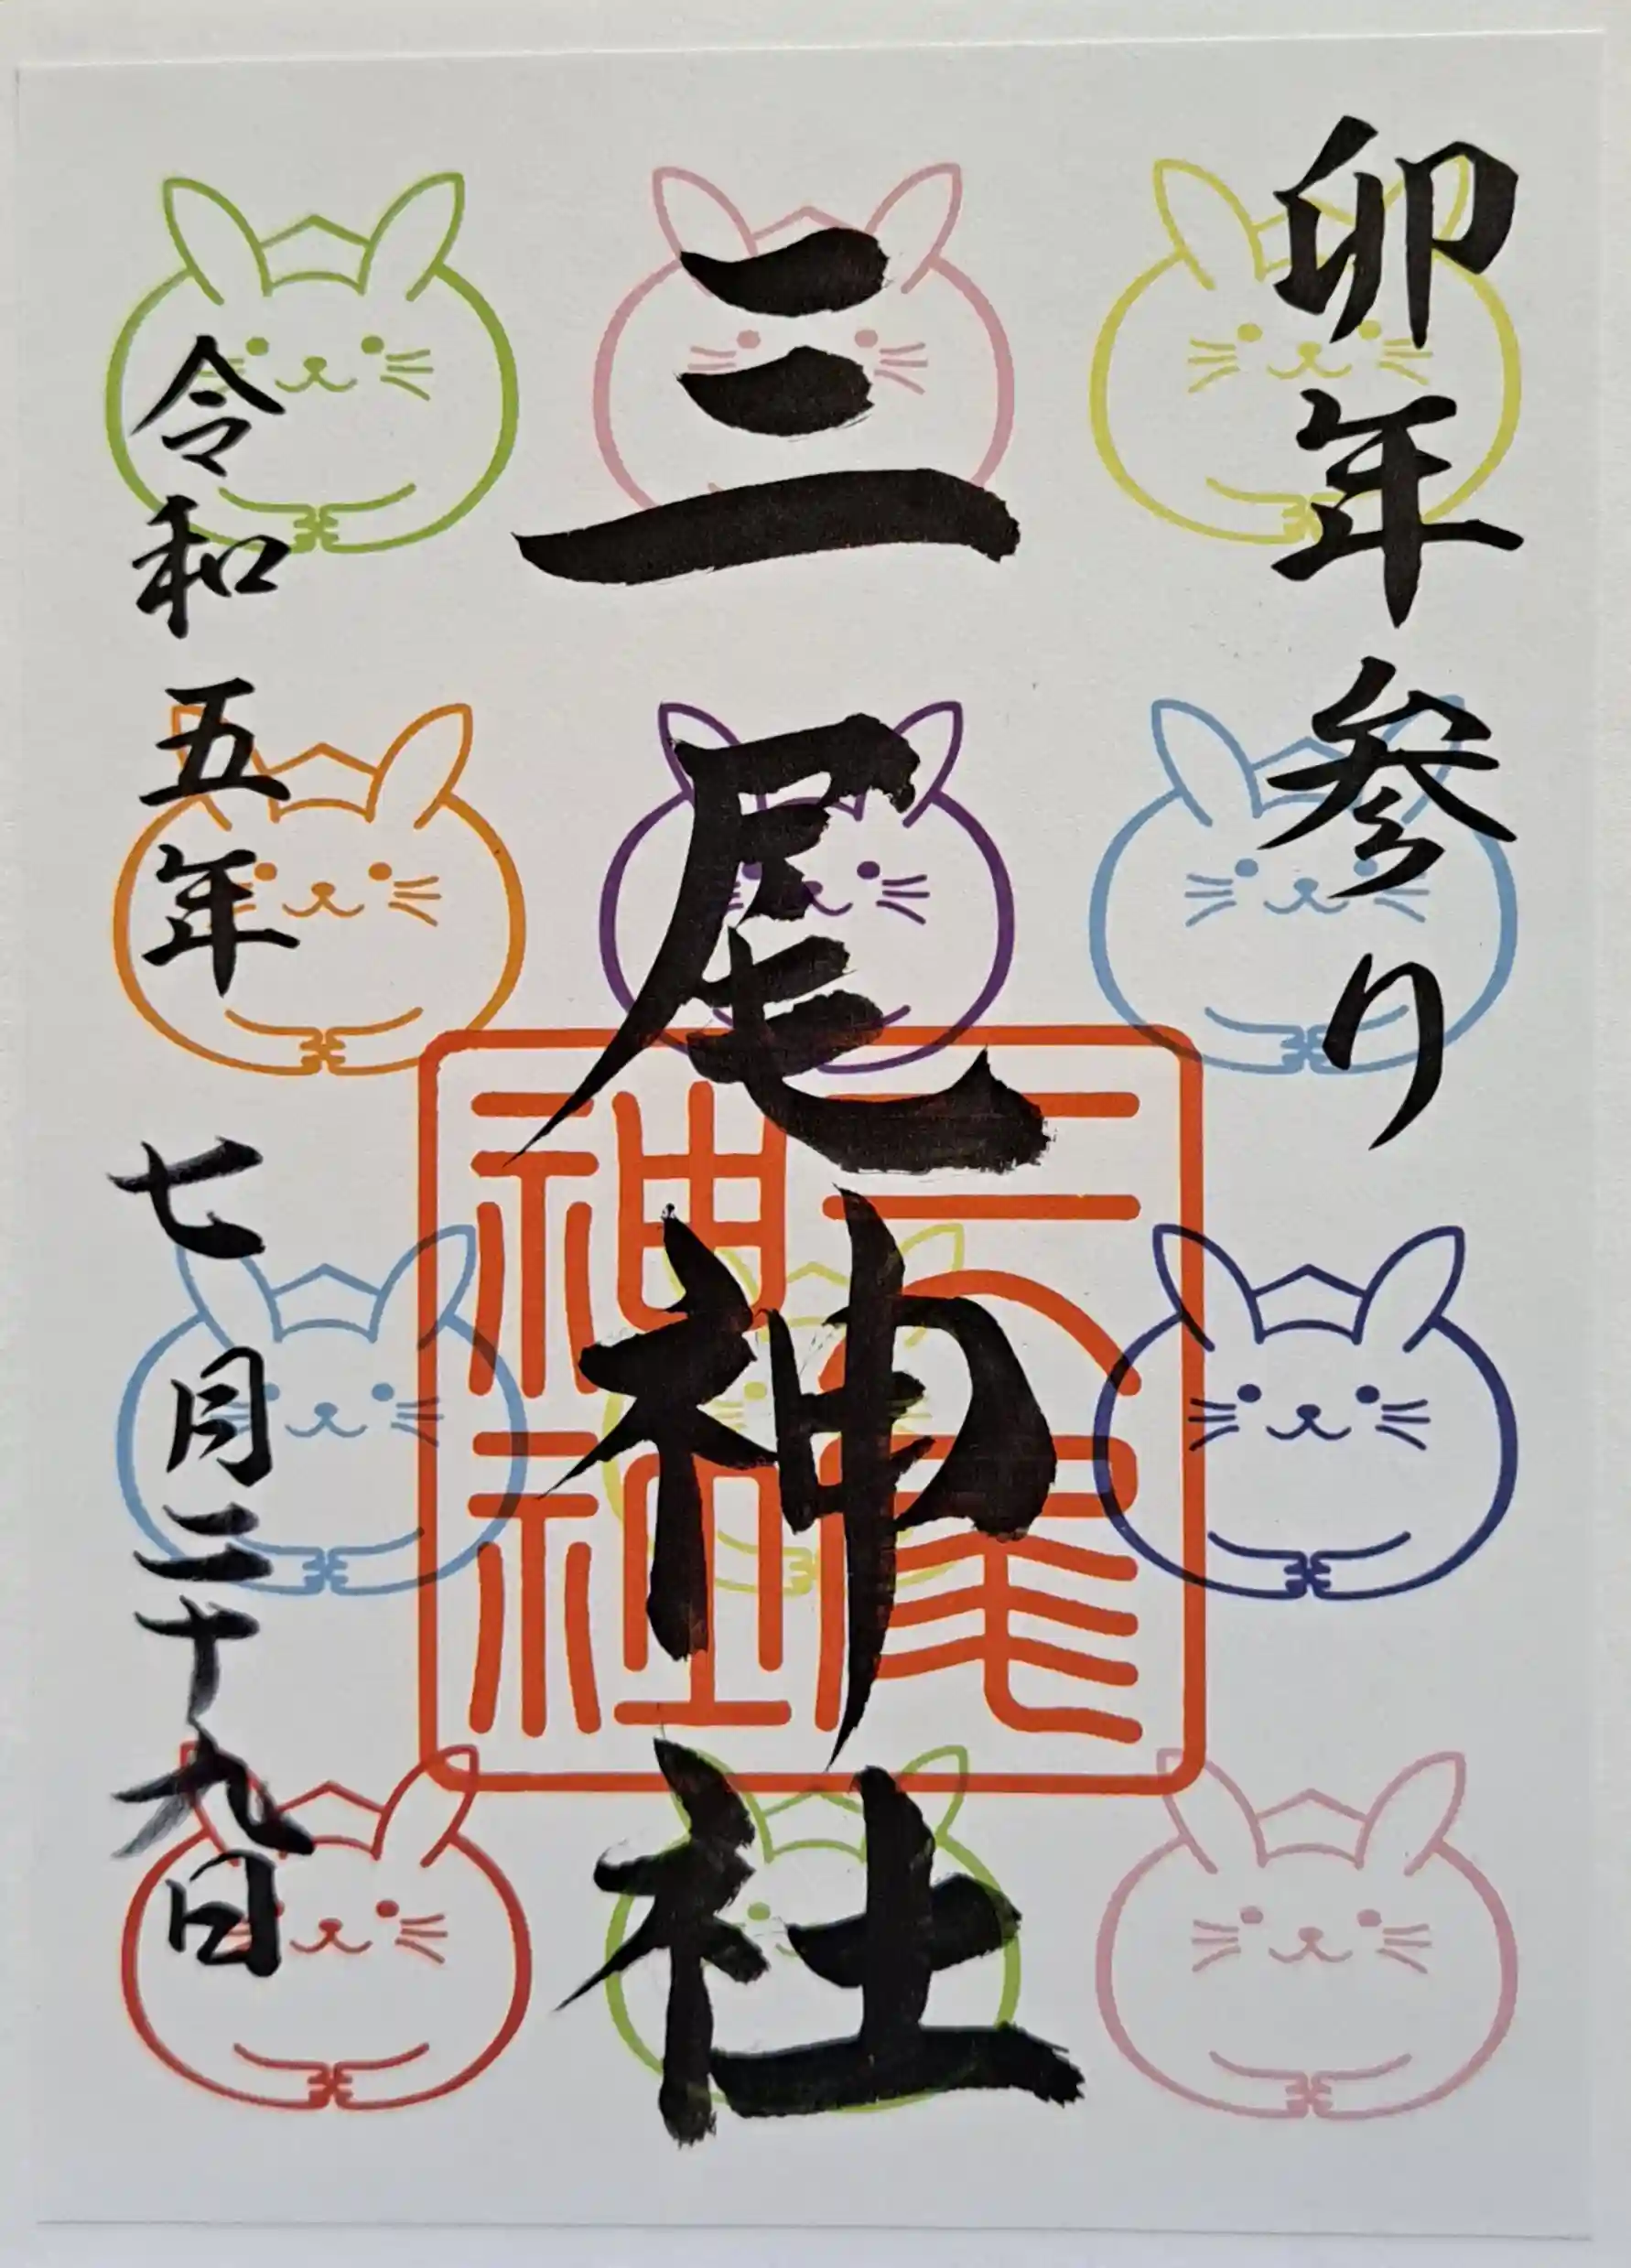 卯年参り
三尾神社
三尾神社
令和五年七月二十九日